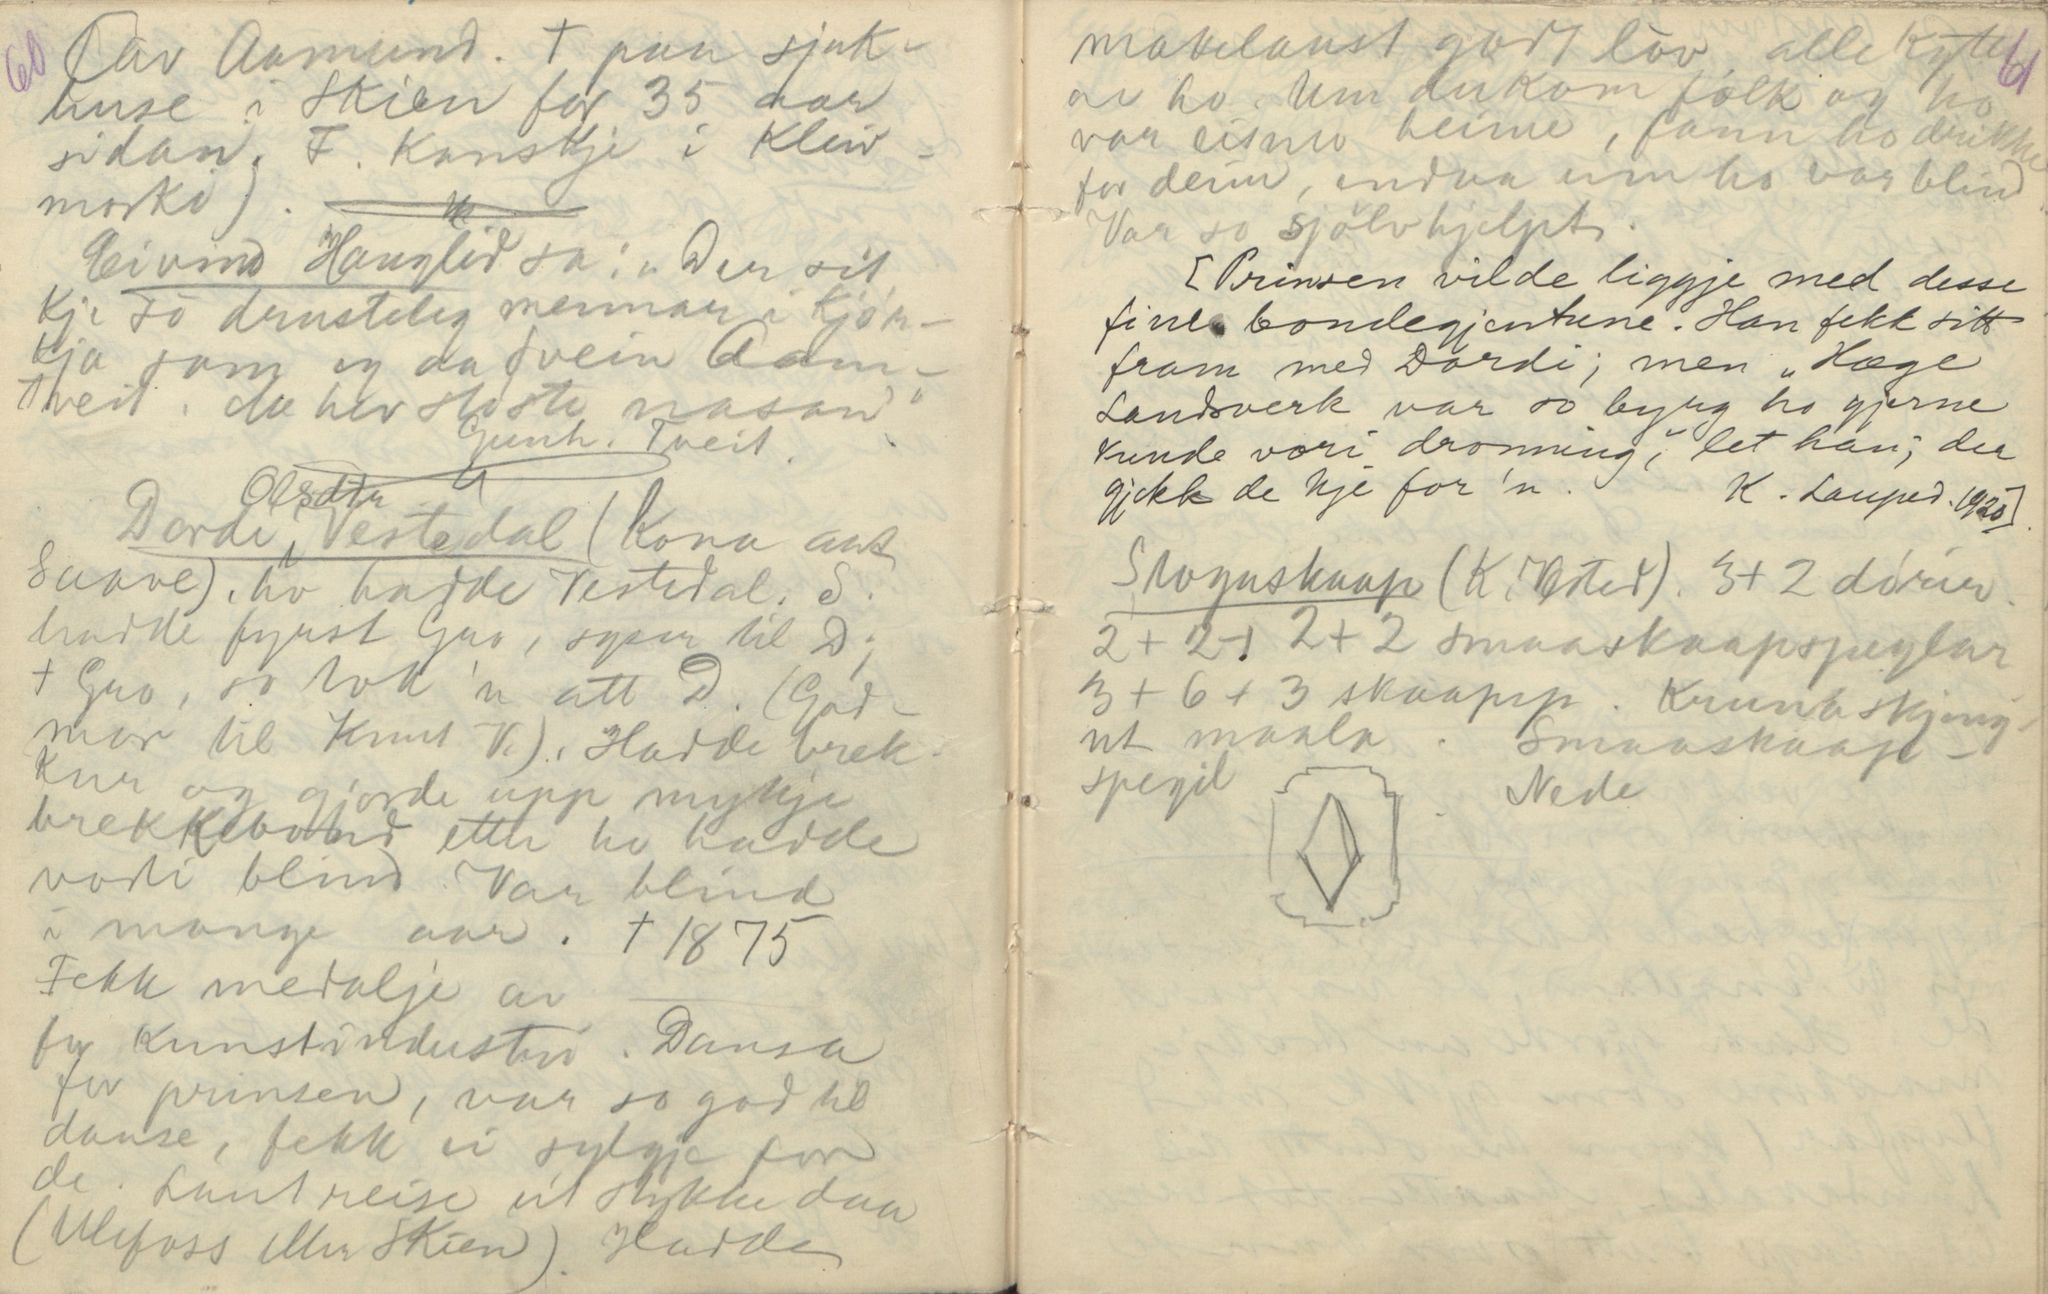 60
(Tav Aamund. † paa sjuk-
huse i Skien for 35 aar
sidan. F. kanskje i Kleiv-
morki).
Eivind Hauglid sa: „Der sit
kje so drusteleg mennar i kjør-
kja som eg da Svein Aam-
tveit. da hev stóste nasan"
Gunh. Tveit.
Olsdtr
Dordi Vestedal (Kona aat
Saave). ho hadde Vestedal. S.
hadde fyrst Gro, syster til D;
† Gro, so tok 'n att D. (God-
mor til Knut V.). Hadde brek-
kur og gjorde upp mykje
brekkebond etter ho hadde
vorti blind. Var blind
i mange aar. † 1875
Fekk medalje av
for kunstindustri. Dansa
for prinsen, var so god til
danse, fekk ei sylgje for
de. Laut reise eit stykke daa
(Ulefoss eller Skien). Hadde
61
makelaust godt lov, alle kyter
av ho. Um du kom folk og ho
var eismo heime, fann ho drikke
for deim, endaa um ho var blind
Var so sjölvhjelpt.
[Prinsen vilde liggje med desse
fine bondegjentune. Han fekk sitt
fram med Dordi; men „Hæge
Landsverk var so byrg ho gjerne
kunde vori dronning", let han; der
gjekk de kje for 'n. K. Lauped. 1920].
Stoguskaap (K. Vested). 3 + 2 dórir.
2 + 2 + 2 + 2 smaaskaapspeglar
3 + 6 + 3 skaapsp. Kruna skjeng-
ut maala. Smaaskaap-
spegil Nede